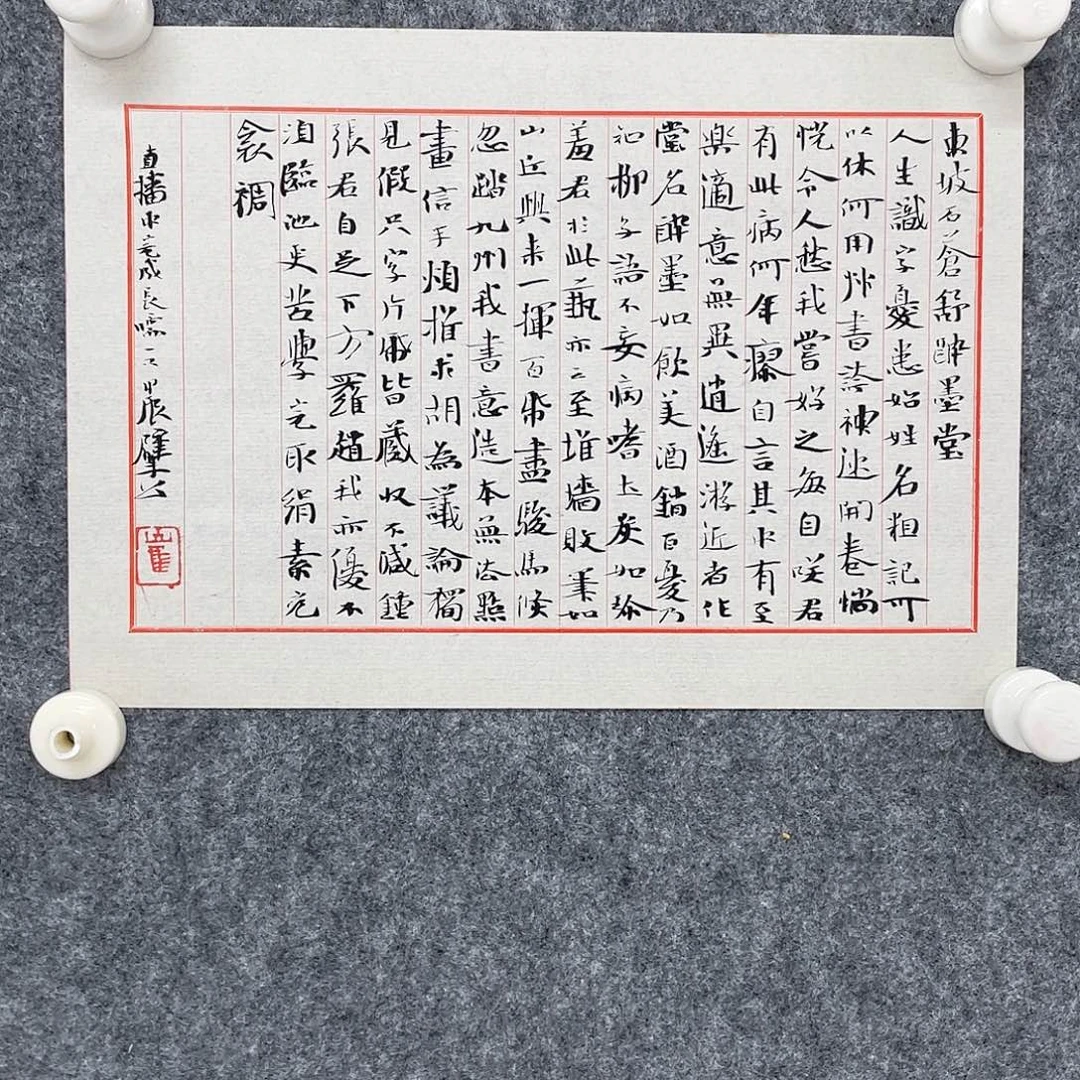 東坡石蒼舒醉墨堂
人生識字憂患始姓名粗記可
以休何用艸書誇神速開卷惝
怳令人愁我嘗好之每自咲君
有此病何年瘳自言其中有至
樂適意無異逍遙游近者作
堂名醉墨如飲美酒銷百憂乃
知柳子語不妄病嗜土炭如珍
羞君於此藝亦云至堆墻敗筆如
山丘興来一揮百紙盡駿馬倏
忽踏九州我書意造本無法點
畫信手煩推求胡為議論獨
見假只字片紙皆藏收不减鍾
張君自足下方羅趙我亦優不
須臨池更苦學完取絹素充
衾裯
直播中竟成長